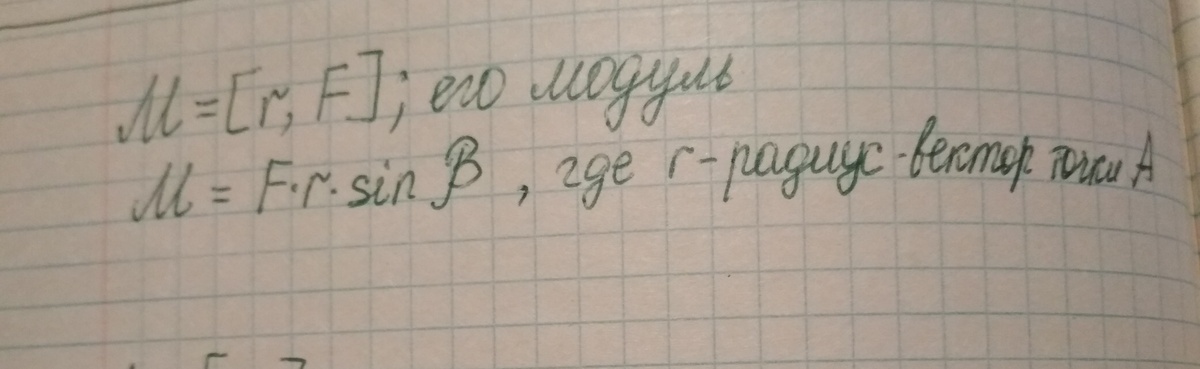 M = [r, F]; его модуль
M = F·r·sin β, где r - радиус-вектор точки A